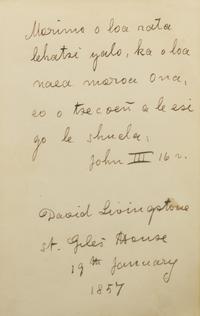 Morimo o loa rata
lehatsi yalo, ka o loa
naea moroa ona,
eo o tsecoeñ a le esi
go le shuela,
John III 16 v.
David Livingstone
St. Giles House
19th January
1857